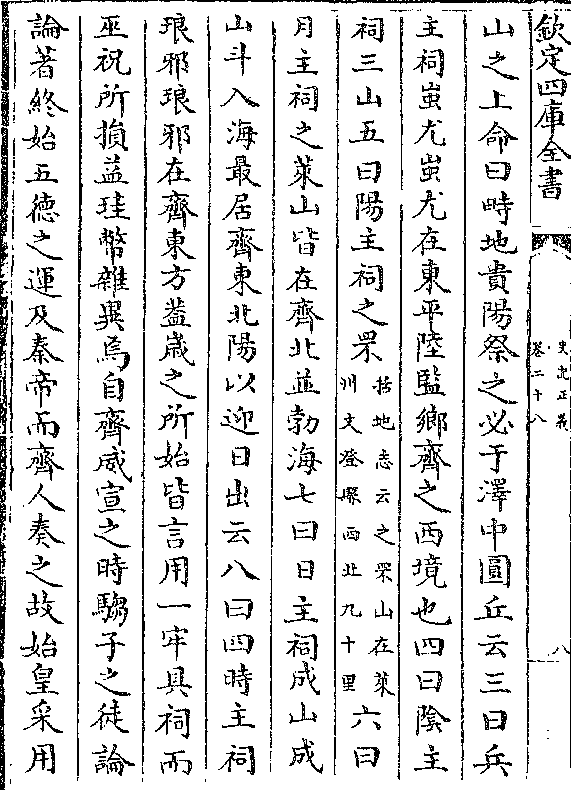 欽定四庫全書
史記正義
卷二十八
八
山之上命曰畤地貴陽祭之必于澤中圓丘云三曰兵
主祠蚩尤蚩尤在東平陸監鄉齊之西境也四曰陰主
祠三山五曰陽主祠之罘
括地志云之罘山在萊
州文登縣西北九十里
六曰
月主祠之萊山皆在齊北並勃海七曰日主祠成山成
山斗入海最居齊東北陽以迎日出云八曰四時主祠
琅邪琅邪在齊東方葢歲之所始皆言用一牢具祠而
巫祝所損益珪幣雜異焉自齊威宣之時騶子之徒論
論著終始五德之運及秦帝而齊人奏之故始皇采用